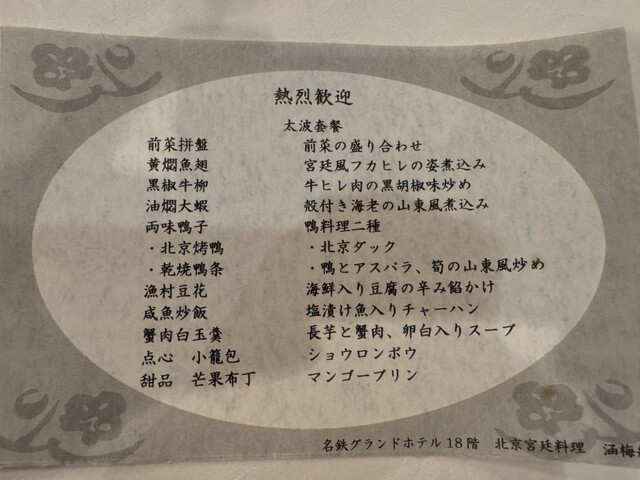 熱烈歓迎
太波套餐
前菜拼盤 前菜の盛り合わせ
黄燜魚翅 宮廷風フカヒレの姿煮込み
黒椒牛柳 牛ヒレ肉の黒胡椒味炒め
油燜大蝦 殻付き海老の山東風煮込み
両味鴨子 鴨料理二種
・北京烤鴨 ・北京ダック
・乾焼鴨条 ・鴨とアスパラ、筍の山東風炒め
漁村豆花 海鮮入り豆腐の辛み餡かけ
咸魚炒飯 塩漬け魚入りチャーハン
蟹肉白玉羹 長芋と蟹肉、卵白入りスープ
点心 小籠包 ショウロンポウ
甜品 芒果布丁 マンゴープリン
名鉄グランドホテル18階 北京宮廷料理 涵梅